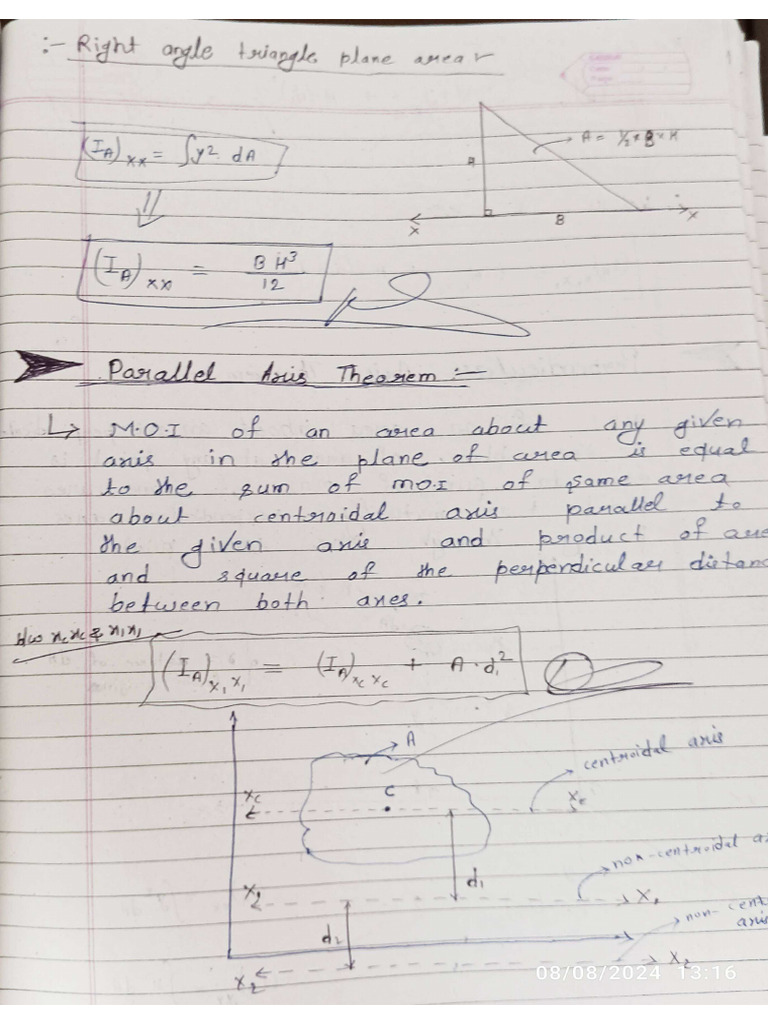 :- Right angle triangle plane area :-
(I_A)_xx = ∫y² dA
A = 1/2 × B × H
H
B
x
x
(I_A)_xx = BH³/12
Parallel Axis Theorem :-
↳ M.O.I of an area about any given
axis in the plane of area is equal
to the sum of M.O.I of same area
about centroidal axis parallel to
the given axis and product of are
and square of the perpendicular distanc
between both axes.
b/w xcxc & x1x1
(I_A)_x1x1 = (I_A)_xcxc + A·d1²
①
A
centroidal axis
C
xc
xc
d1
non-centroidal a
x1
non-cent
axis
d2
x2
x2
08/08/2024 13:16